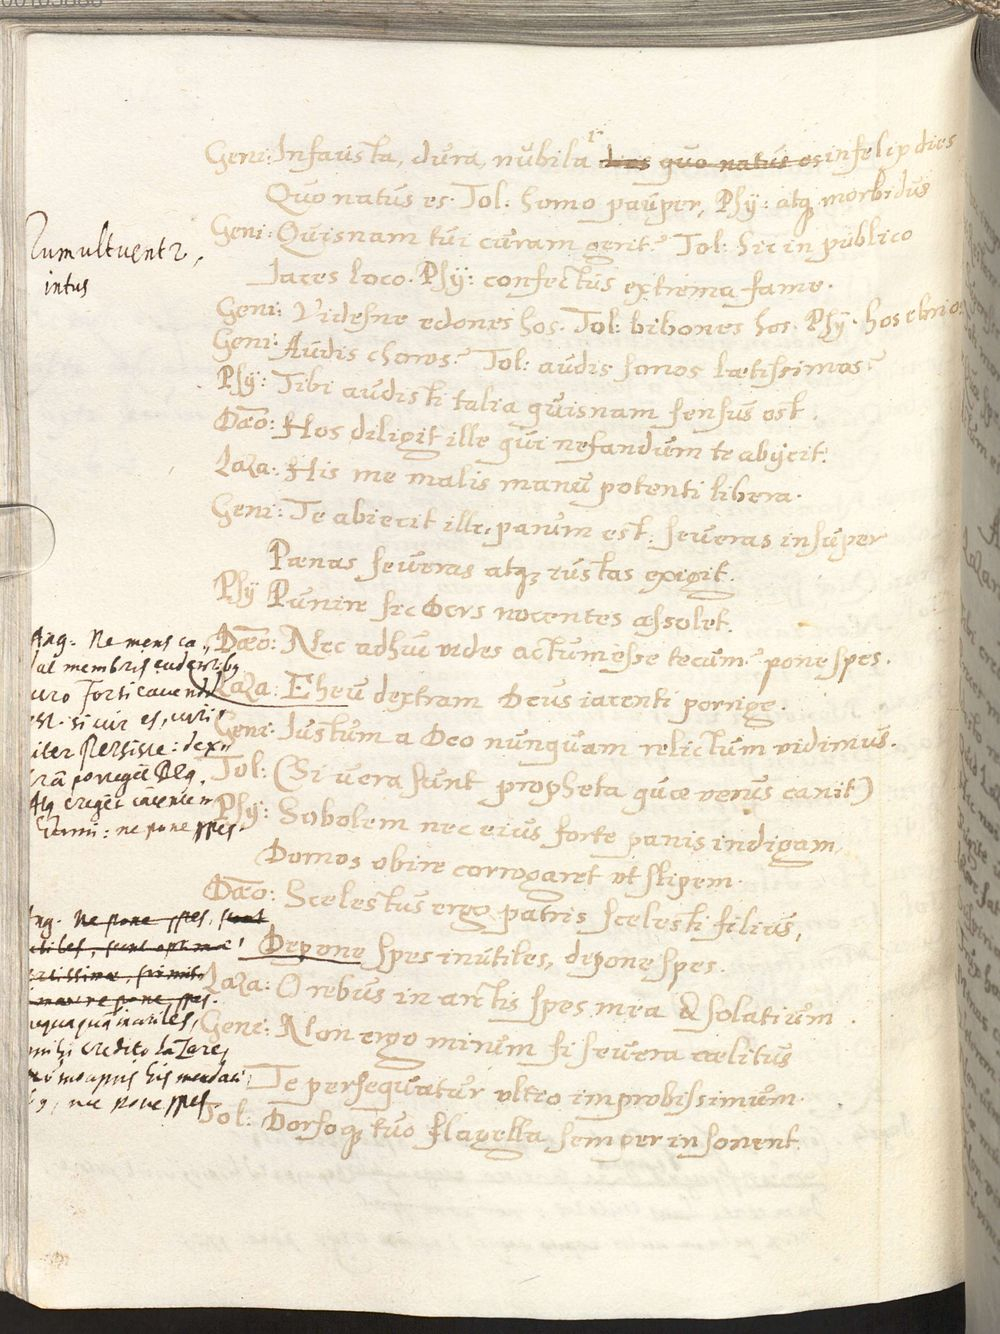 Geni: Infausta, dura, nubila quo natus es infelix dies
Quo natus es. Tol: homo pauper, Psÿ: atq morbidus
Geni: Quisnam tui curam gerit? Tol: hic in publico
Iaces loco. Psÿ: confectus extrema fame.
Geni: Videsne edones hos. Tol: bibones hos. Psÿ: hos ebrios
Geni: Audis choros? Tol: audis sonos lætissimos?
Psÿ: Tibi audisti talia quisnam sensus est.
Dæo: Hos diligit ille qui nefandum te abÿcit.
Laza: His me malis manu potenti libera.
Geni: Te abiecit ille, parum est, seueras insuper
Pœnas seueras atq iustas exigit.
Psÿ Punire sic Deus nocentes assolet.
Dæo: Nec adhuc uides actum esse tecum? pone spes.
Laza: Eheu dextram Deus iacenti porrige.
Geni: Iustum a Deo nunquam relictum vidimus.
Tol: (Si uera sunt propheta quæ verus canit)
Psÿ: Sobolem nec eius forte panis indigam
Domos obire corrogaret ut stipem.
Dæo: Scelestus ergo patris scelesti filius,
Depone spes inutiles, depone spes.
Laza: O rebus in arctis spes mea & solatium.
Geni: Non ergo mirum si seuera cælitus
Te persequatur ultio improbissimum.
Tol: Dorsoq tuo flagella semper insonent.
Tumultuentr
intus
Ang. Ne mens ca
dat membris
uro forti
est. si uir es, uiri
iter
trã
Atq
ne pone spes.
Ang. Ne pone spes, sunt
ne pone spes.
inutiles,
mihi credito Lazare,
ne pone spes